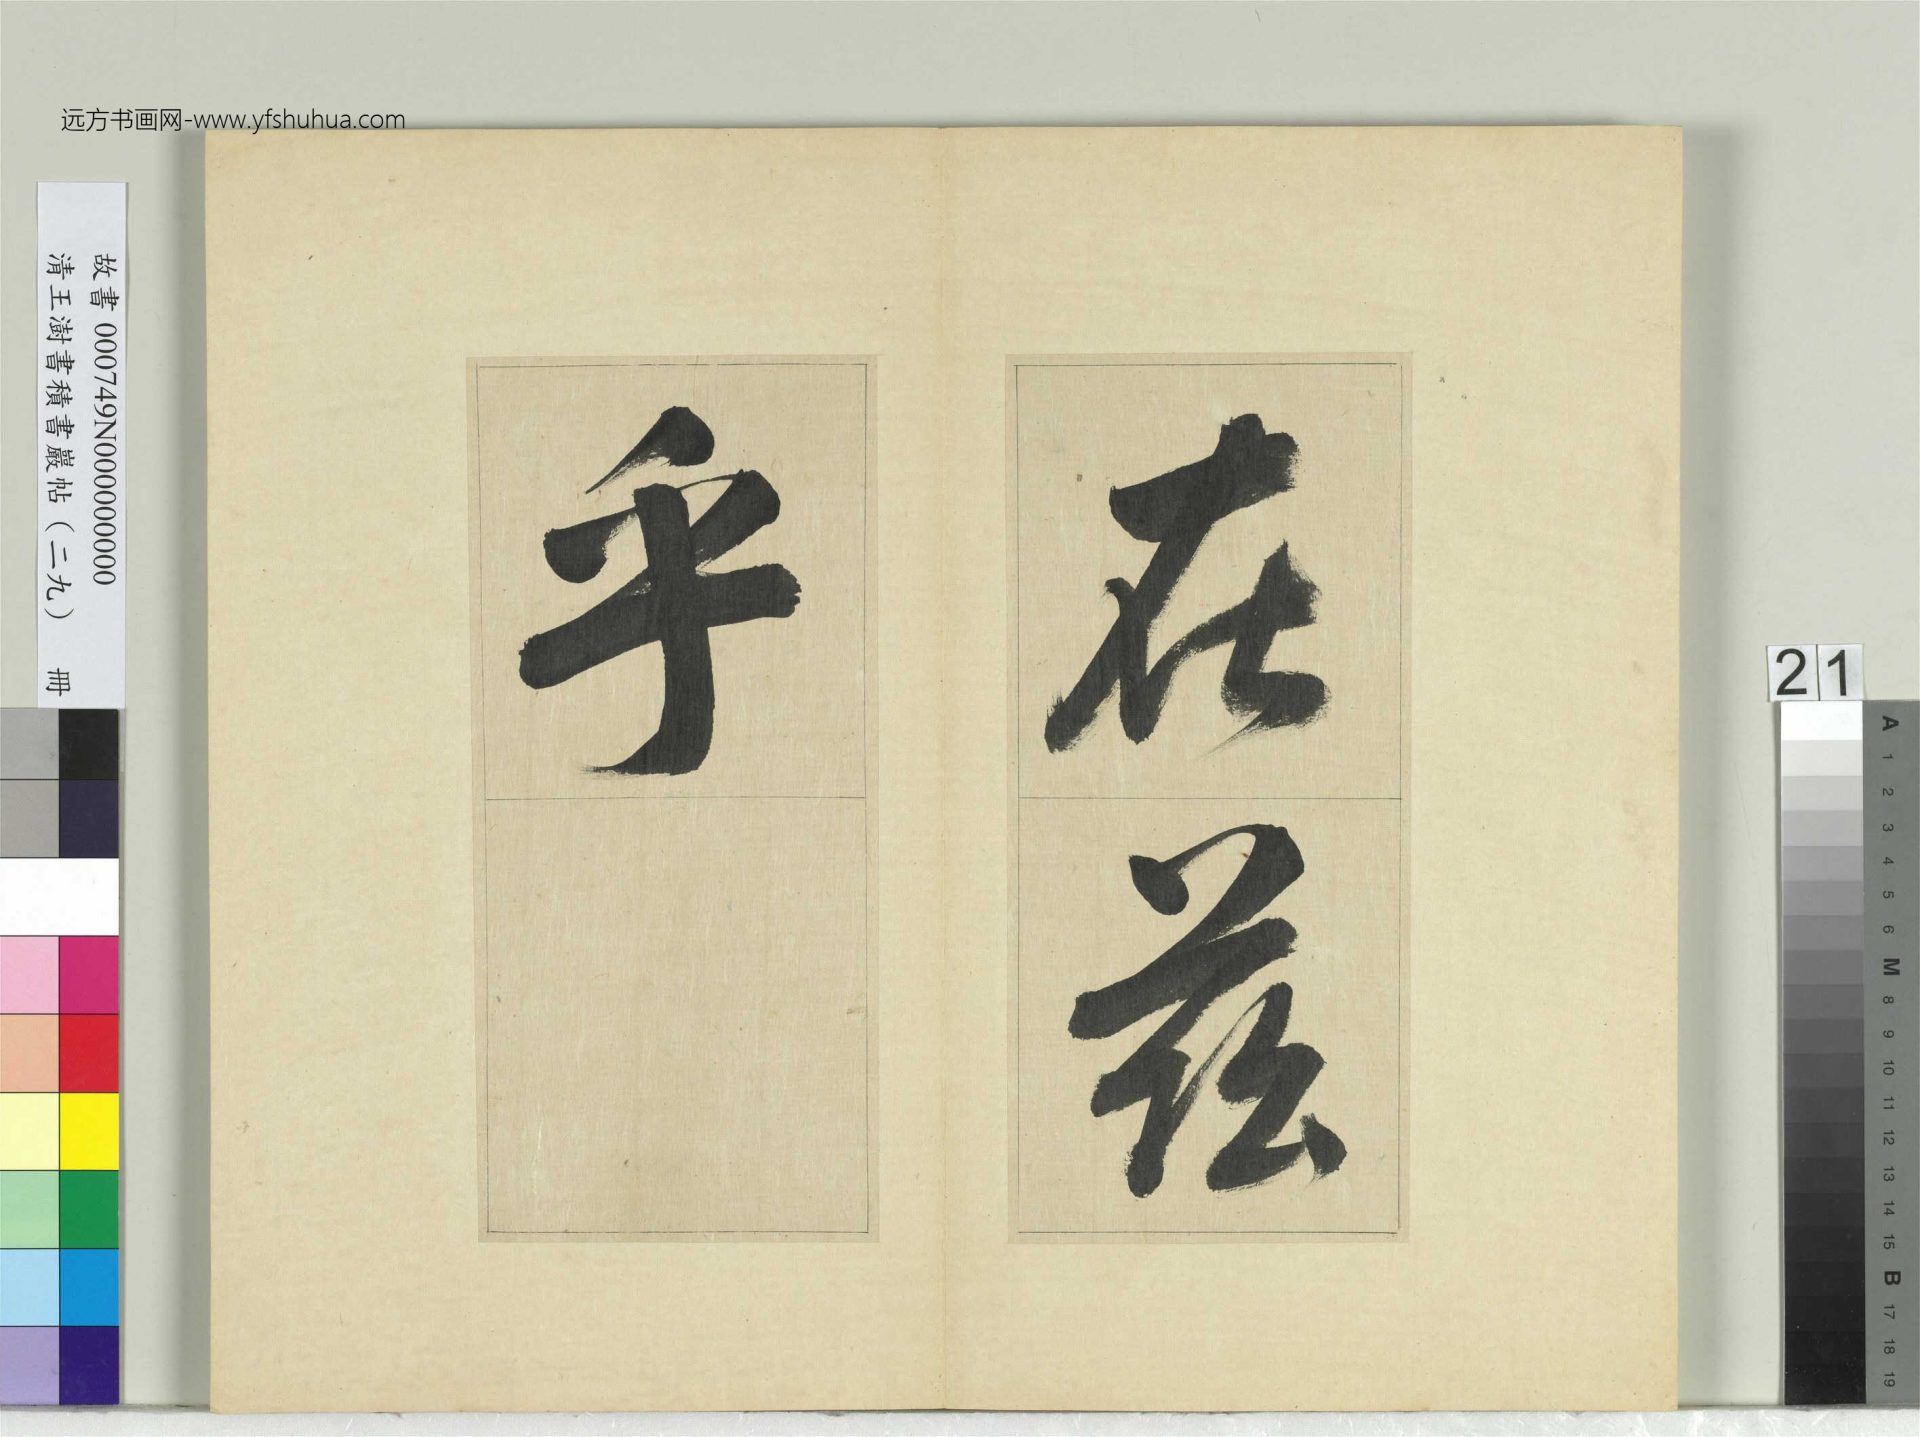 远方书画网-www.yfshuhua.com
故書 000749N000000000
清王澍書積書巖帖（二九） 冊
在茲
乎
21
A
1
2
3
4
5
6
M
8
9
10
11
12
13
14
15
B
17
18
19